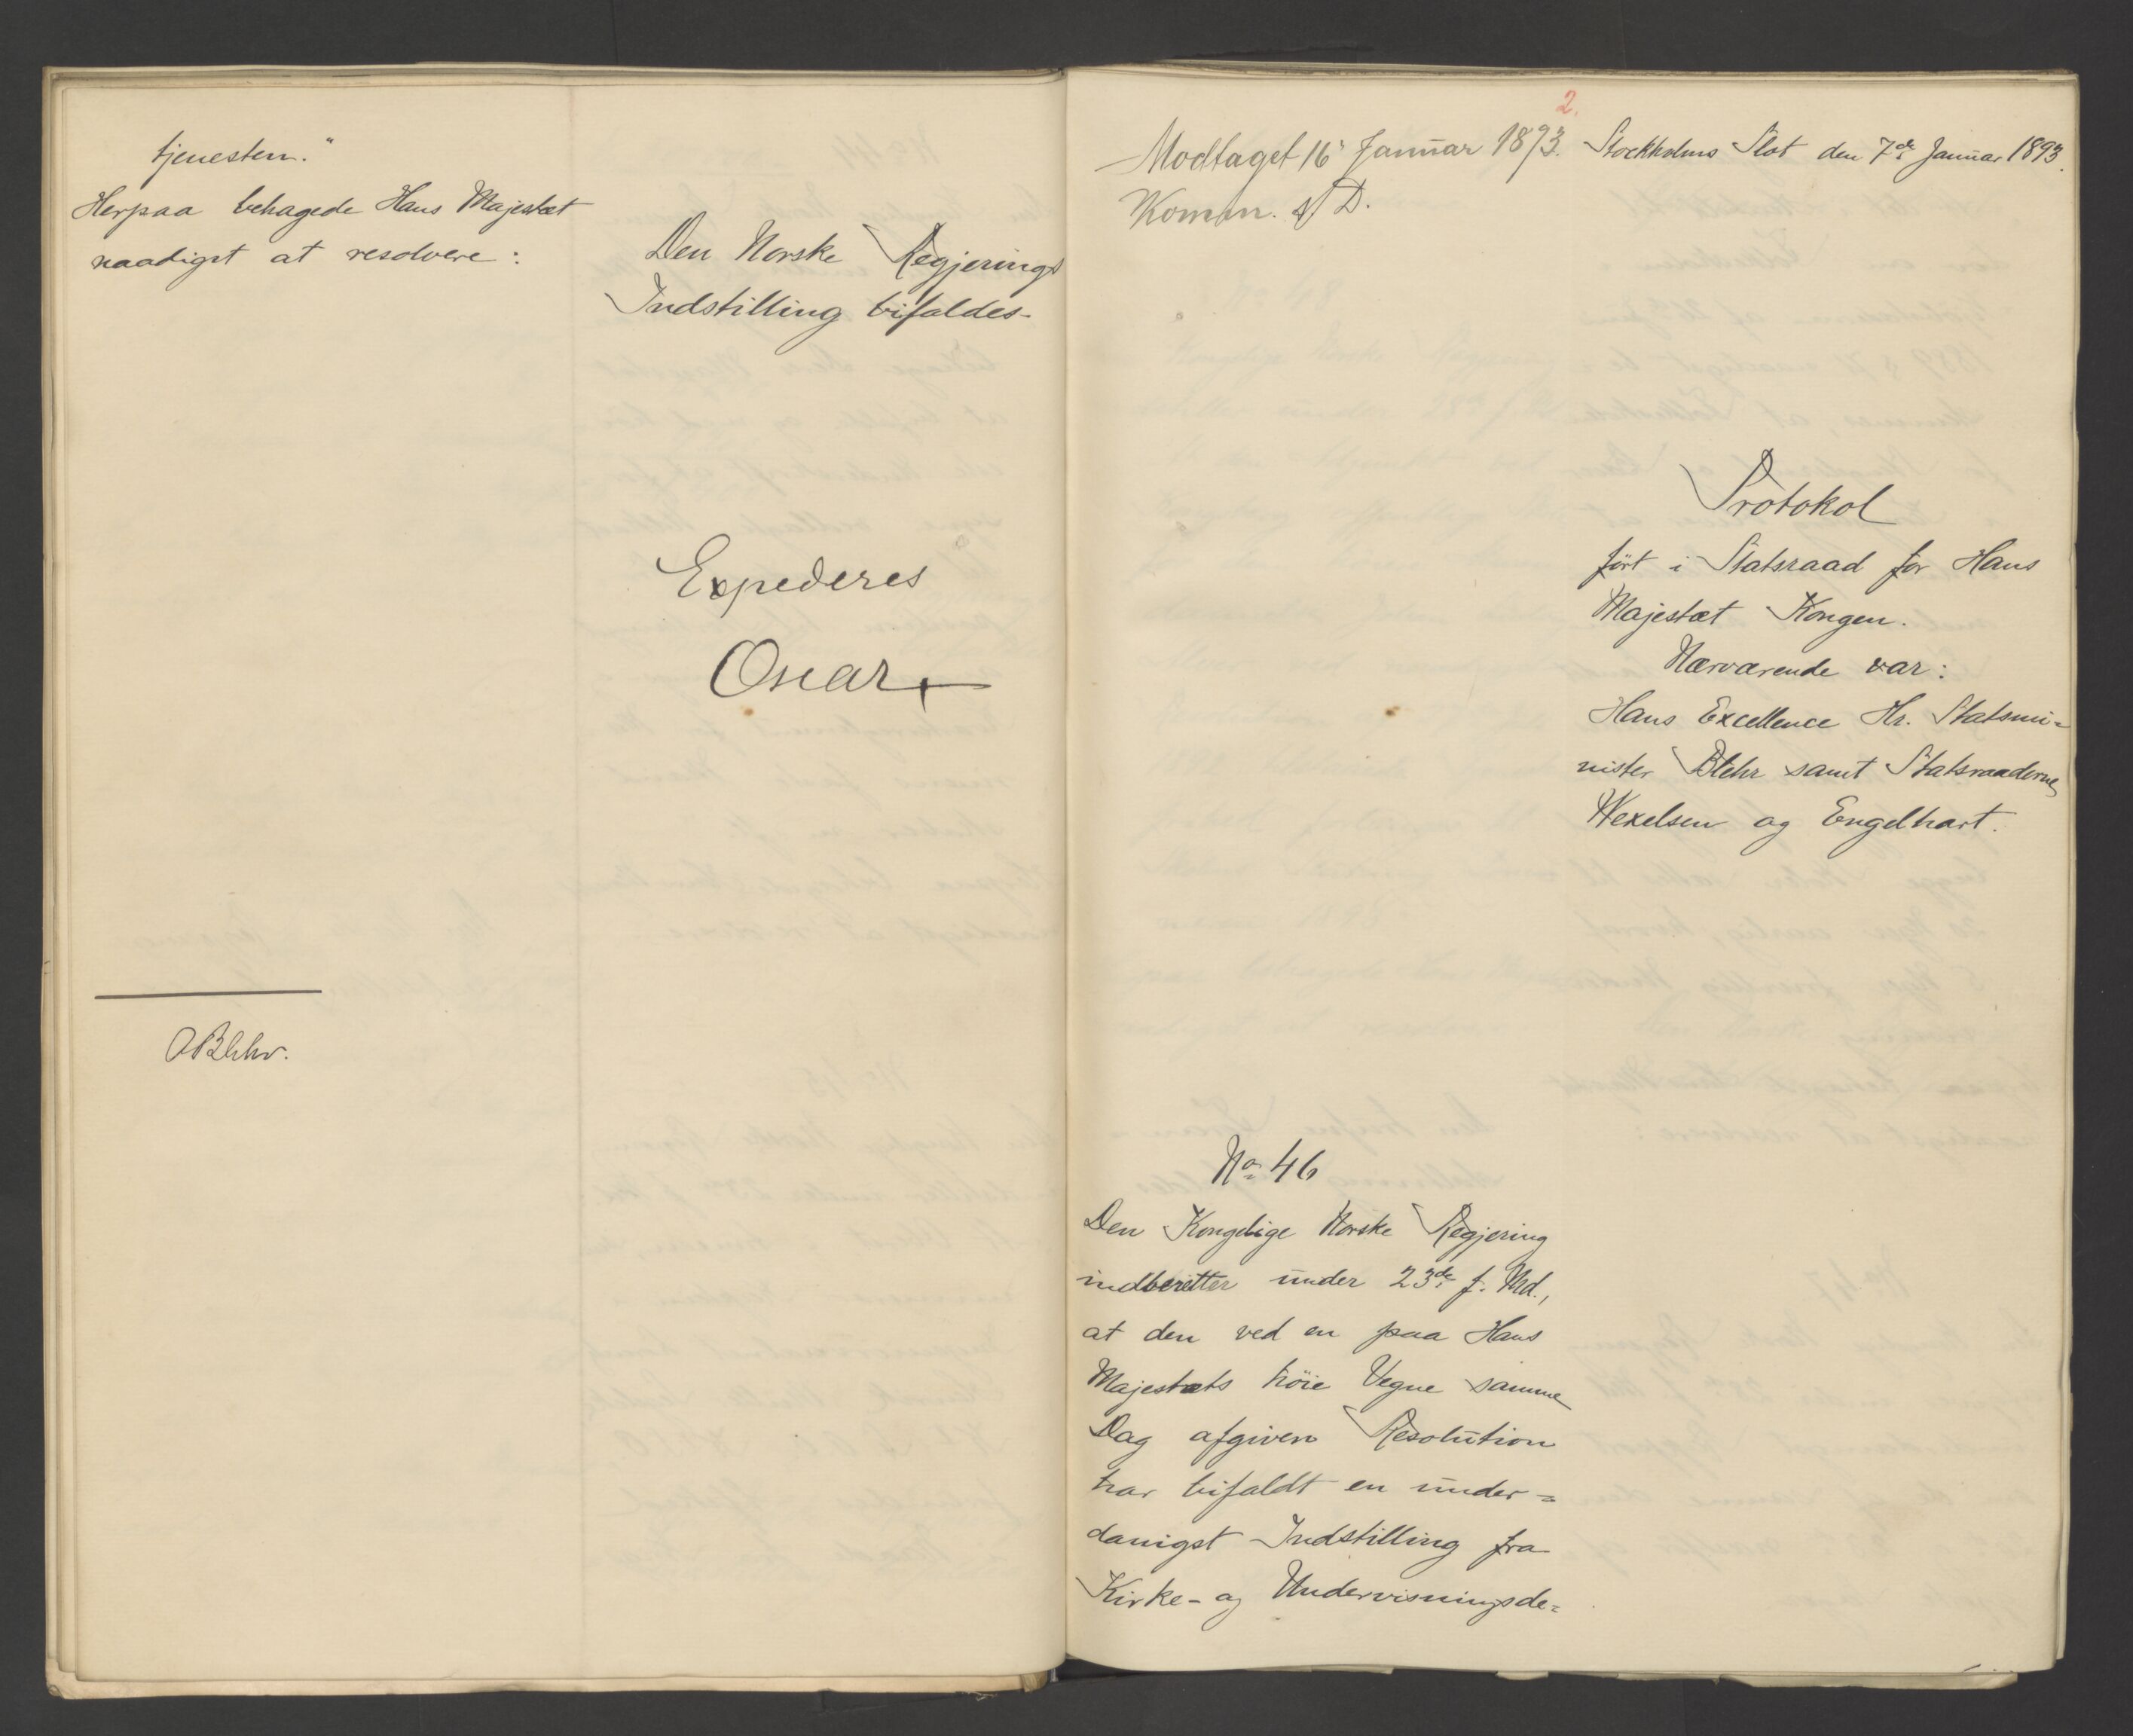 tjenesten."
Herpaa behagede Hans Majestæt
naadigst at resolvere:
Den Norske Regjerings
Indstilling bifaldes.
Expederes
Oscar
OBlehr.
2.
Modtaget 16' Januar 1893.
Komm. D.
Stockholms Slot den 7de Januar 1893.
Protokol
ført i Statsraad for Hans
Majestæt Kongen.
Nærværende var:
Hans Excellence Hr. Statsmi=
nister Blehr samt Statsraaderne
Wexelsen og Engelhart.
No 46
Den Kongelige Norske Regjering
indberetter under 23de f. Md.,
at den ved en paa Hans
Majestæts høie Vegne samme
Dag afgiven Resolution
har bifaldt en under=
danigst Indstilling fra
Kirke- og Undervisningsde=